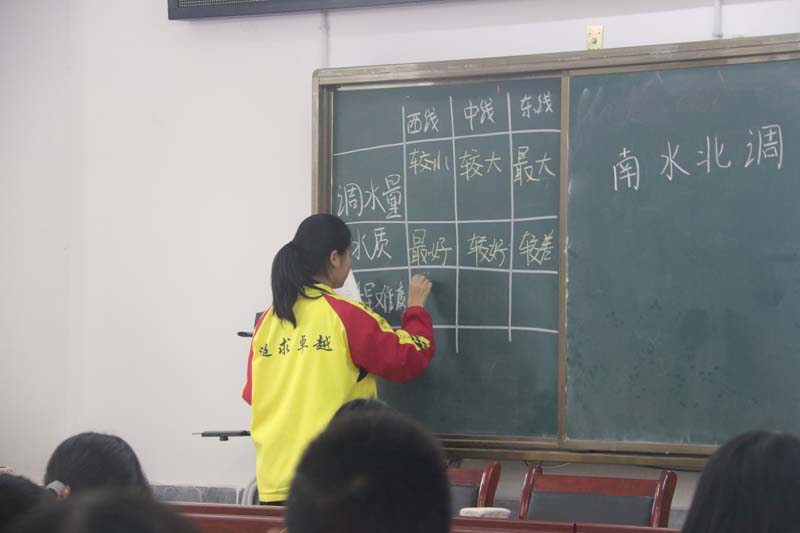 西线 中线 东线
较小 较大 最大
调水量
水质 最好 较好 较差
程难度
南水北调
追求卓越